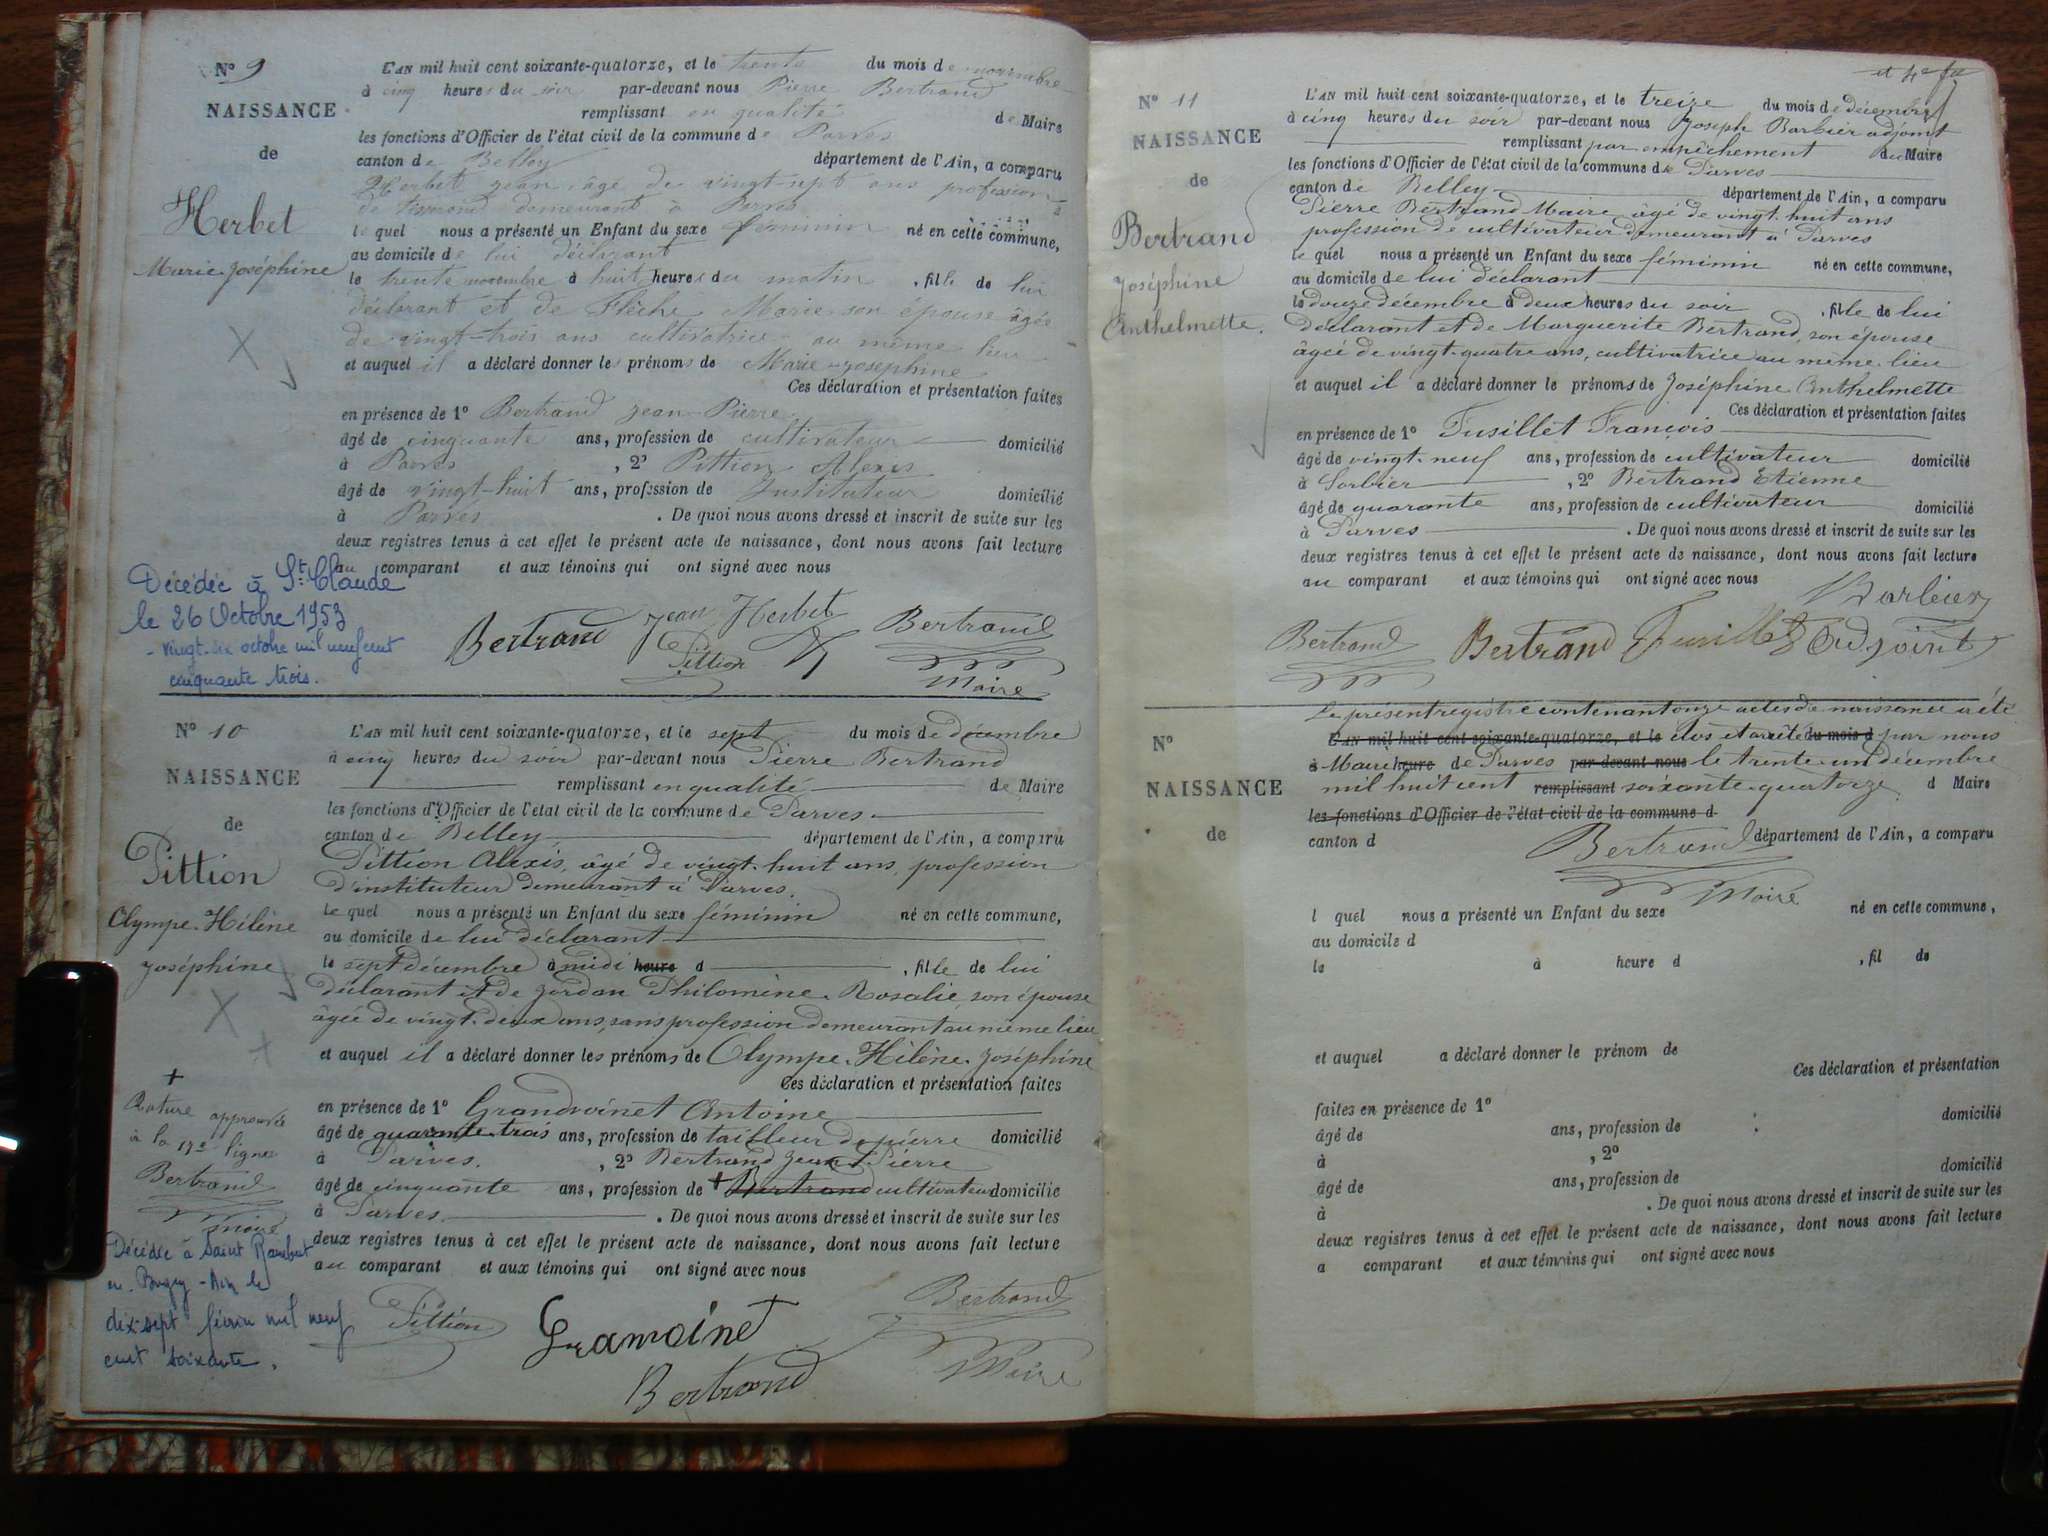 Nº 9
NAISSANCE
de
Herbet
Marie-Joséphine
L'AN mil huit cent soixante-quatorze, et le trente du mois de novembre
à cinq heures du soir par-devant nous Pierre Bertrand
remplissant en qualité de Maire
les fonctions d'Officier de l'état civil de la commune de Parves
canton de Belley département de l'Ain, a comparu
Herbet Jean, âgé de vingt-sept ans profession
de demeurant à Parves
le quel nous a présenté un Enfant du sexe féminin né en cette commune,
au domicile de lui déclarant
le trente novembre à huit heures du matin, fille de lui
déclarant et de Flèche Marie son épouse âgée
de vingt-trois ans cultivatrice au même lieu
et auquel il a déclaré donner les prénoms de Marie-Joséphine
Ces déclaration et présentation faites
en présence de 1º Bertrand Jean-Pierre
âgé de cinquante ans, profession de cultivateur domicilié
à Parves, 2º Pittion Alexis
âgé de vingt-huit ans, profession de Instituteur domicilié
à Parves. De quoi nous avons dressé et inscrit de suite sur les
deux registres tenus à cet effet le présent acte de naissance, dont nous avons fait lecture
au comparant et aux témoins qui ont signé avec nous
Décédée à St. Claude
le 26 Octobre 1953
- vingt-six octobre mil neuf cent
cinquante trois.
Bertrand Jean Herbet Bertrand
Pittion
Maire
Nº 10
NAISSANCE
de
Pittion
Olympe-Hélène
Joséphine
L'AN mil huit cent soixante-quatorze, et le sept du mois de décembre
à cinq heures du soir par-devant nous Pierre Bertrand
remplissant en qualité de Maire
les fonctions d'Officier de l'état civil de la commune de Parves
canton de Belley département de l'Ain, a comparu
Pittion Alexis, âgé de vingt-huit ans, profession
d'instituteur demeurant à Parves.
le quel nous a présenté un Enfant du sexe féminin né en cette commune,
au domicile de lui déclarant
le sept décembre à midi heure d, fille de lui
déclarant et de Jordan Philomène-Rosalie, son épouse
âgée de vingt-deux ans, sans profession demeurant au même lieu
et auquel il a déclaré donner les prénoms de Olympe-Hélène-Joséphine
Ces déclaration et présentation faites
en présence de 1º Grandvoinet Antoine
âgé de quarante-trois ans, profession de tailleur de pierre domicilié
à Parves., 2º Bertrand Jean-Pierre
âgé de cinquante ans, profession de + Bertrand cultivateur domicilié
à Parves. De quoi nous avons dressé et inscrit de suite sur les
deux registres tenus à cet effet le présent acte de naissance, dont nous avons fait lecture
au comparant et aux témoins qui ont signé avec nous
+
Rature approuvée
à la 17e ligne
Bertrand
Maire
Décédée à Saint Rambert
en Bugey - Ain le
dix-sept février mil neuf
cent soixante.
Pittion
Bertrand
Bertrand
Maire
Nº 11
NAISSANCE
de
Bertrand
Joséphine
Anthelmette.
L'AN mil huit cent soixante-quatorze, et le treize du mois de décembre
à cinq heures du soir par-devant nous Joseph Barbier adjoint
remplissant par empêchement du Maire
les fonctions d'Officier de l'état civil de la commune de Parves
canton de Belley département de l'Ain, a comparu
Pierre Bertrand Maire âgé de vingt-huit ans
profession de cultivateur demeurant à Parves
le quel nous a présenté un Enfant du sexe féminin né en cette commune,
au domicile de lui déclarant
le douze décembre à deux heures du soir, fille de lui
déclarant et de Marguerite Bertrand, son épouse
âgée de vingt-quatre ans, cultivatrice au même lieu
et auquel il a déclaré donner le prénoms de Joséphine Anthelmette
Ces déclaration et présentation faites
en présence de 1º Fusillet François
âgé de vingt-neuf ans, profession de cultivateur domicilié
à Sorbier, 2º Bertrand Etienne
âgé de quarante ans, profession de cultivateur domicilié
à Parves. De quoi nous avons dressé et inscrit de suite sur les
deux registres tenus à cet effet le présent acte de naissance, dont nous avons fait lecture
au comparant et aux témoins qui ont signé avec nous
Barbier
Bertrand Bertrand Fusillet Adjoint
Le présent registre contenant onze actes de naissance a été
Nº
NAISSANCE
de
L'AN mil huit cent soixante-quatorze, et le clos et arrêté du mois d par nous
à Maire heure de Parves par-devant nous le trente-un décembre
mil huit cent remplissant soixante-quatorze. d Maire
les fonctions d'Officier de l'état civil de la commune d
canton d département de l'Ain, a comparu
Bertrand
Maire
l quel nous a présenté un Enfant du sexe né en cette commune,
au domicile d
le à heure d, fil de
et auquel a déclaré donner le prénom de
Ces déclaration et présentation
faites en présence de 1º
âgé de ans, profession de domicilié
à, 2º
âgé de ans, profession de domicilié
à. De quoi nous avons dressé et inscrit de suite sur les
deux registres tenus à cet effet le présent acte de naissance, dont nous avons fait lecture
a comparant et aux témoins qui ont signé avec nous